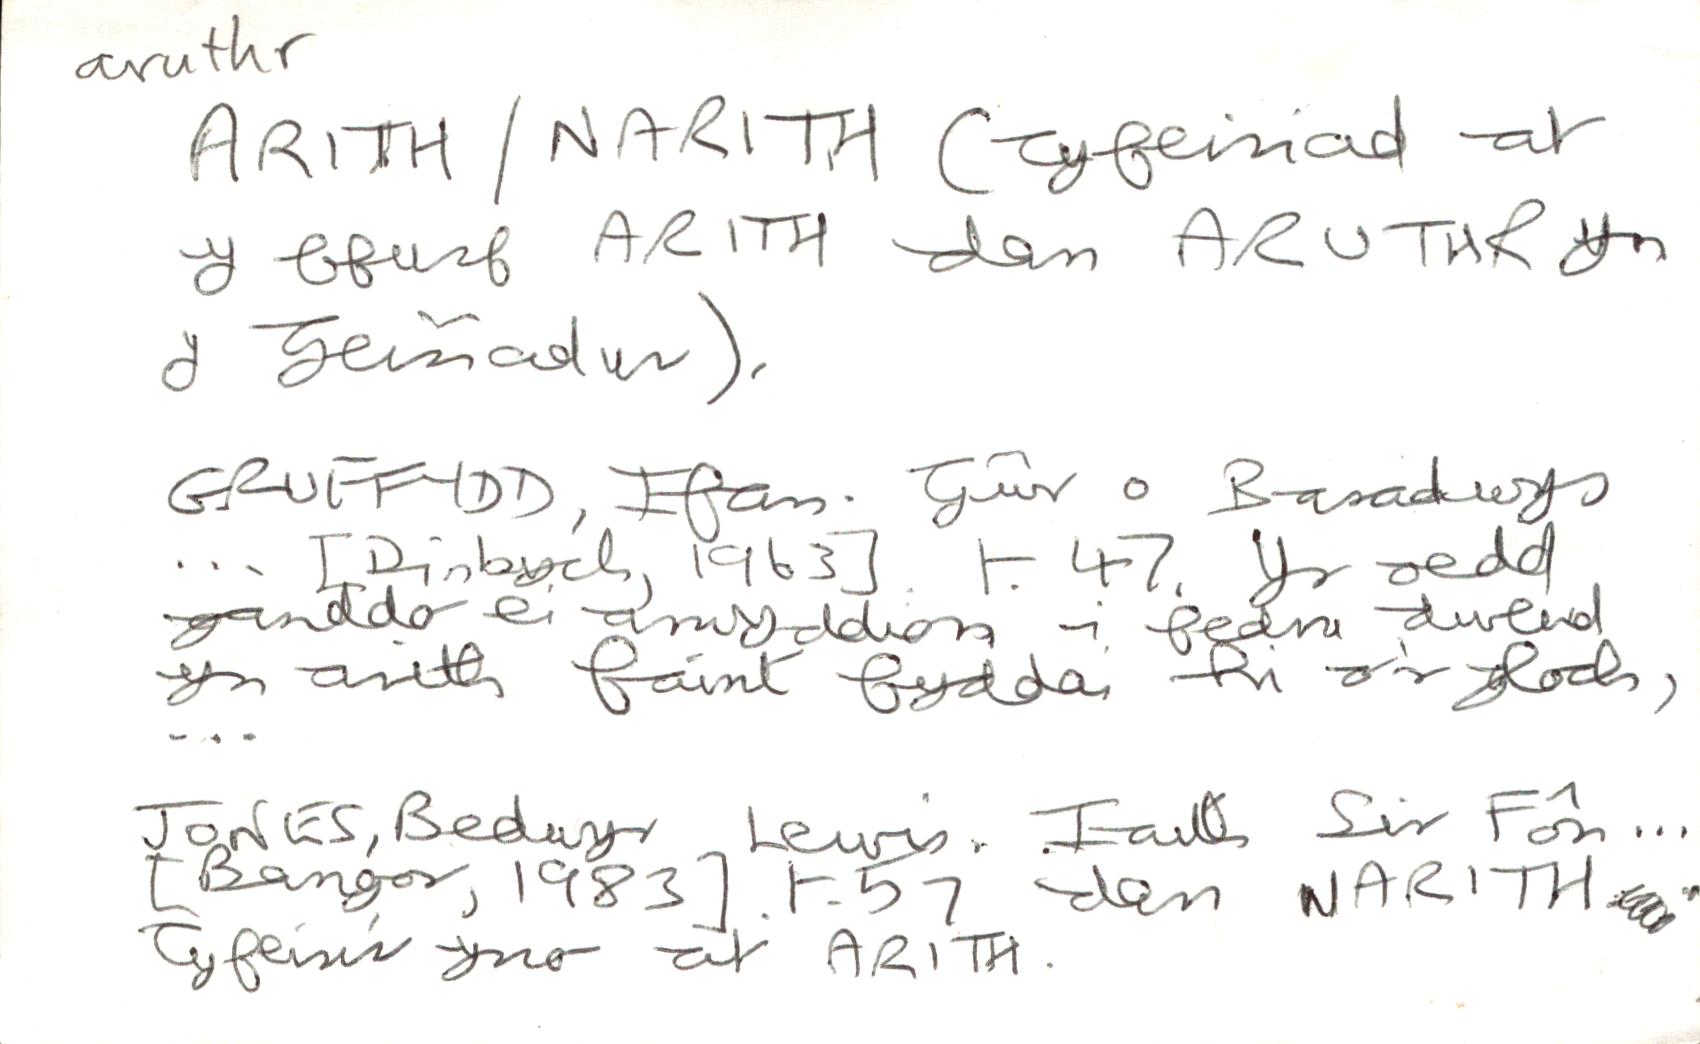 aruthr
ARITH / NARITH (Cyfeiriad at
y ffurf ARITH dan ARUTHR yn
y Geiriadur).
GRUFFYDD, Ifan. Gŵr o Baradwys
... [Dinbych, 1963]. t. 47. Yr oedd
ganddo ei arwyddion i fedru dweud
yn arith faint fyddai hi o'r gloch,
...
JONES, Bedwyr Lewis. Iaith Sir Fôn ...
[Bangor, 1983]. t. 57 dan NARITH
Cyfeirir yno at ARITH.